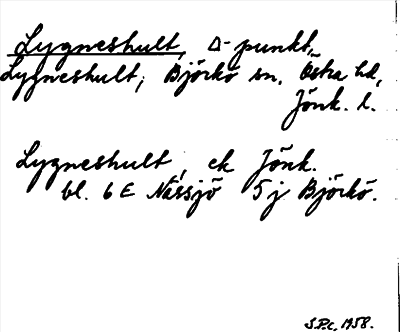 Lygneshult, Δ-punkt,
Lygneshult, Björkö sn, Östra hd,
Jönk. l.
Lygneshult, ek Jönk.
bl. 6 E Nässjö 5j Björkö.
S.P.c. 1958.